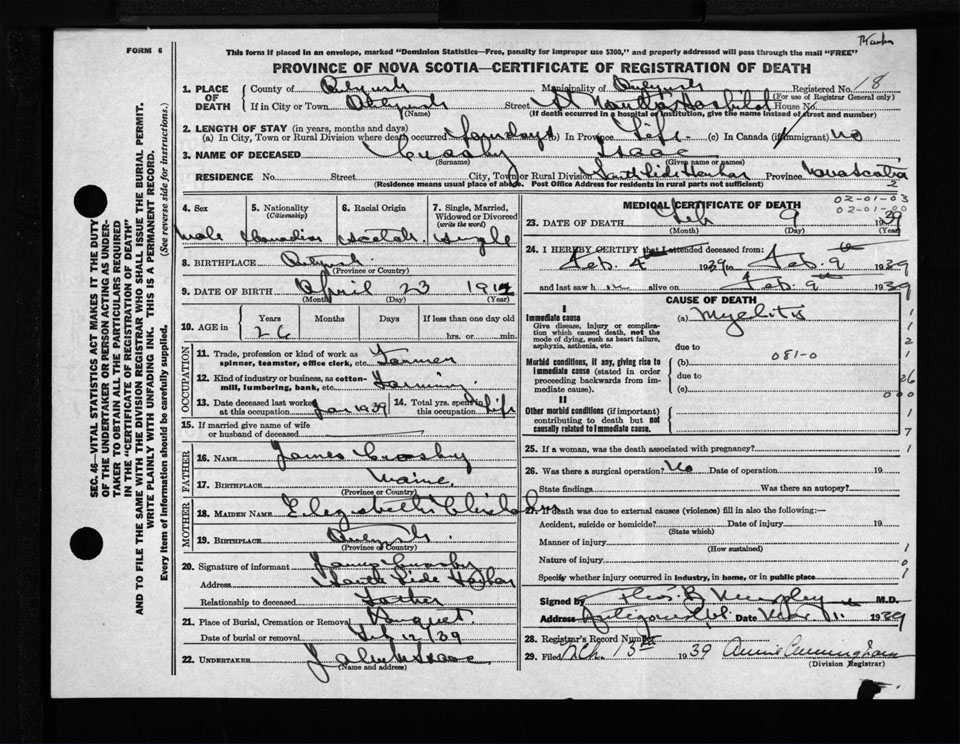 FORM 6
This form if placed in an envelope, marked "Dominion Statistics—Free, penalty for improper use $300," and properly addressed will pass through the mail "FREE"
PROVINCE OF NOVA SCOTIA—CERTIFICATE OF REGISTRATION OF DEATH
SEC. 46—VITAL STATISTICS ACT MAKES IT THE DUTY
OF THE UNDERTAKER OR PERSON ACTING AS UNDER-
TAKER TO OBTAIN ALL THE PARTICULARS REQUIRED
IN THE "CERTIFICATE OF REGISTRATION OF DEATH"
AND TO FILE THE SAME WITH THE DIVISION REGISTRAR WHO SHALL ISSUE THE BURIAL PERMIT.
WRITE PLAINLY WITH UNFADING INK. THIS IS A PERMANENT RECORD.
Every item of information should be carefully supplied. (See reverse side for instructions.)
1. PLACE OF DEATH
County of Municipality of Registered No. 18
(For use of Registrar General only)
If in City or Town (Name) Street St Martha's Hospital House No.
(If death occurred in a hospital or institution, give the name instead of street and number)
2. LENGTH OF STAY (in years, months and days)
(a) In City, Town or Rural Division where death occurred four days (b) In Province Life (c) In Canada (if immigrant) no
3. NAME OF DECEASED Crosby Isaac
(Surname) (Given name or names)
RESIDENCE No. Street City, Town or Rural Division South Side Harbor Province Nova Scotia
(Residence means usual place of abode. Post Office Address for residents in rural parts not sufficient)
2
4. Sex Male
5. Nationality (Citizenship) Canadian
6. Racial Origin Scotch
7. Single, Married, Widowed or Divorced (write the word) Single
8. BIRTHPLACE
(Province or Country)
9. DATE OF BIRTH April 23
(Month) (Day) (Year)
10. AGE in Years Months Days If less than one day old
26 hrs. or min.
OCCUPATION
11. Trade, profession or kind of work as spinner, teamster, office clerk, etc. Farmer
12. Kind of industry or business, as cotton-mill, lumbering, bank, etc. Farming
13. Date deceased last worked at this occupation Jan 1939
14. Total yrs. spent in this occupation Life
15. If married give name of wife or husband of deceased
FATHER
16. NAME James Crosby
17. BIRTHPLACE Maine
(Province or Country)
MOTHER
18. MAIDEN NAME Elizabeth Chisholm
19. BIRTHPLACE
(Province or Country)
20. Signature of informant James Crosby
Address South Side Harbor
Relationship to deceased Father
21. Place of Burial, Cremation or Removal
Date of burial or removal Feb 12/39
22. UNDERTAKER
(Name and address)
MEDICAL CERTIFICATE OF DEATH
02-01-03
02-01-00
23. DATE OF DEATH Feb 9 1939
(Month) (Day) (Year)
24. I HEREBY CERTIFY that I attended deceased from:
Feb. 4th 1939 to Feb. 9th 1939
and last saw h im alive on Feb. 9th 1939
CAUSE OF DEATH
I
Immediate cause
Give disease, injury or complication which caused death, not the mode of dying, such as heart failure, asphyxia, asthenia, etc.
(a) Myelitis
due to
Morbid conditions, if any, giving rise to immediate cause (stated in order proceeding backwards from immediate cause).
(b) 081-0
due to
(c)
II
Other morbid conditions (if important) contributing to death but not causally related to immediate cause.
1
1
2
1
26
000
1
7
25. If a woman, was the death associated with pregnancy?
26. Was there a surgical operation? No Date of operation 19
State findings Was there an autopsy?
27. If death was due to external causes (violence) fill in also the following:—
Accident, suicide or homicide? Date of injury 19
(State which)
Manner of injury
(How sustained)
Nature of injury
Specify whether injury occurred in industry, in home, or in public place
1
0
1
Signed by M.D.
Address Date Mar. 11 1939
28. Registrar's Record Number
29. Filed 13th 1939 Annie Cunningham
(Division Registrar)